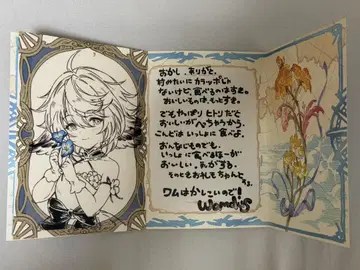 おかし、ありがと。
前みたいに カラッポじゃ
ないけど、食べるのはすき。
おいしいものは、もっとすき。
でもやっぱり ヒトリだと
おいしいがへっちゃうから
こんどは いっしょに食べよ。
おんなじものでも、
いっしょに食べるほーが
おいーしい、気がする。
そのこともおれも ちゃんと
ワムはかしこいので!
Wamdus